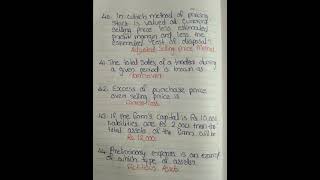 40. In which method of pricing
stock is valued at current
selling price less estimated
profit margin and less the
estimated cost of disposal?
Adjusted Selling price Method
41. The total sales of a trader during
a given period is known as
Turnover
42. Excess of purchase price
over selling price is
Gross loss
43. If the firm's capital is Rs 10,000
liabilities are Rs 2000 then the
total assets of the firm will be
Rs 12,000
44. Preliminary expense is an example
of which type of assets
Fictitious Assets